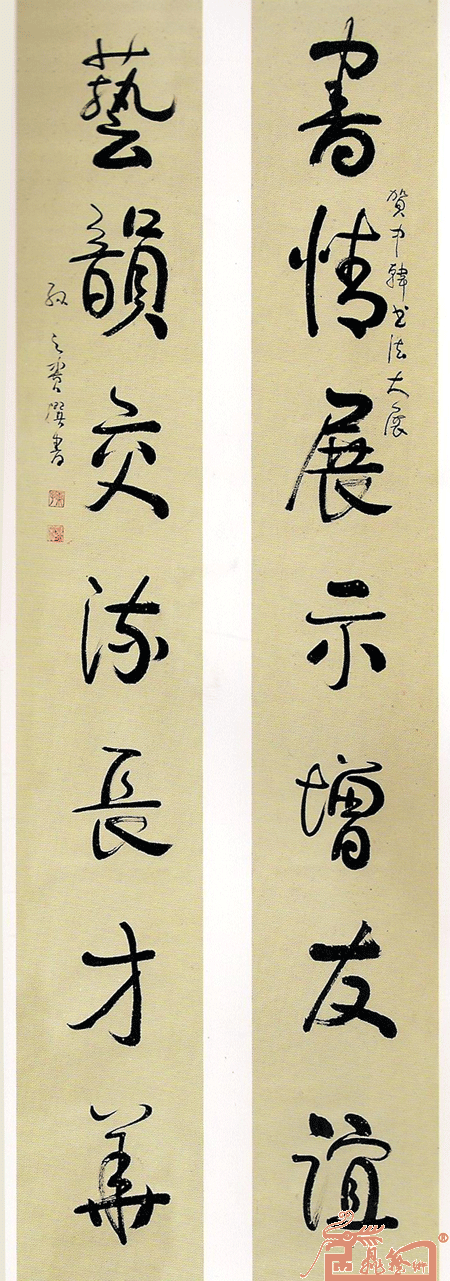 書情展示增友誼
賀中韓书法大展
藝韻交流長才華
孙之贵撰書